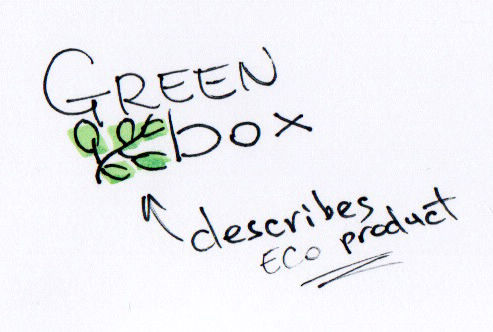 GREEN
box
describes
ECO product